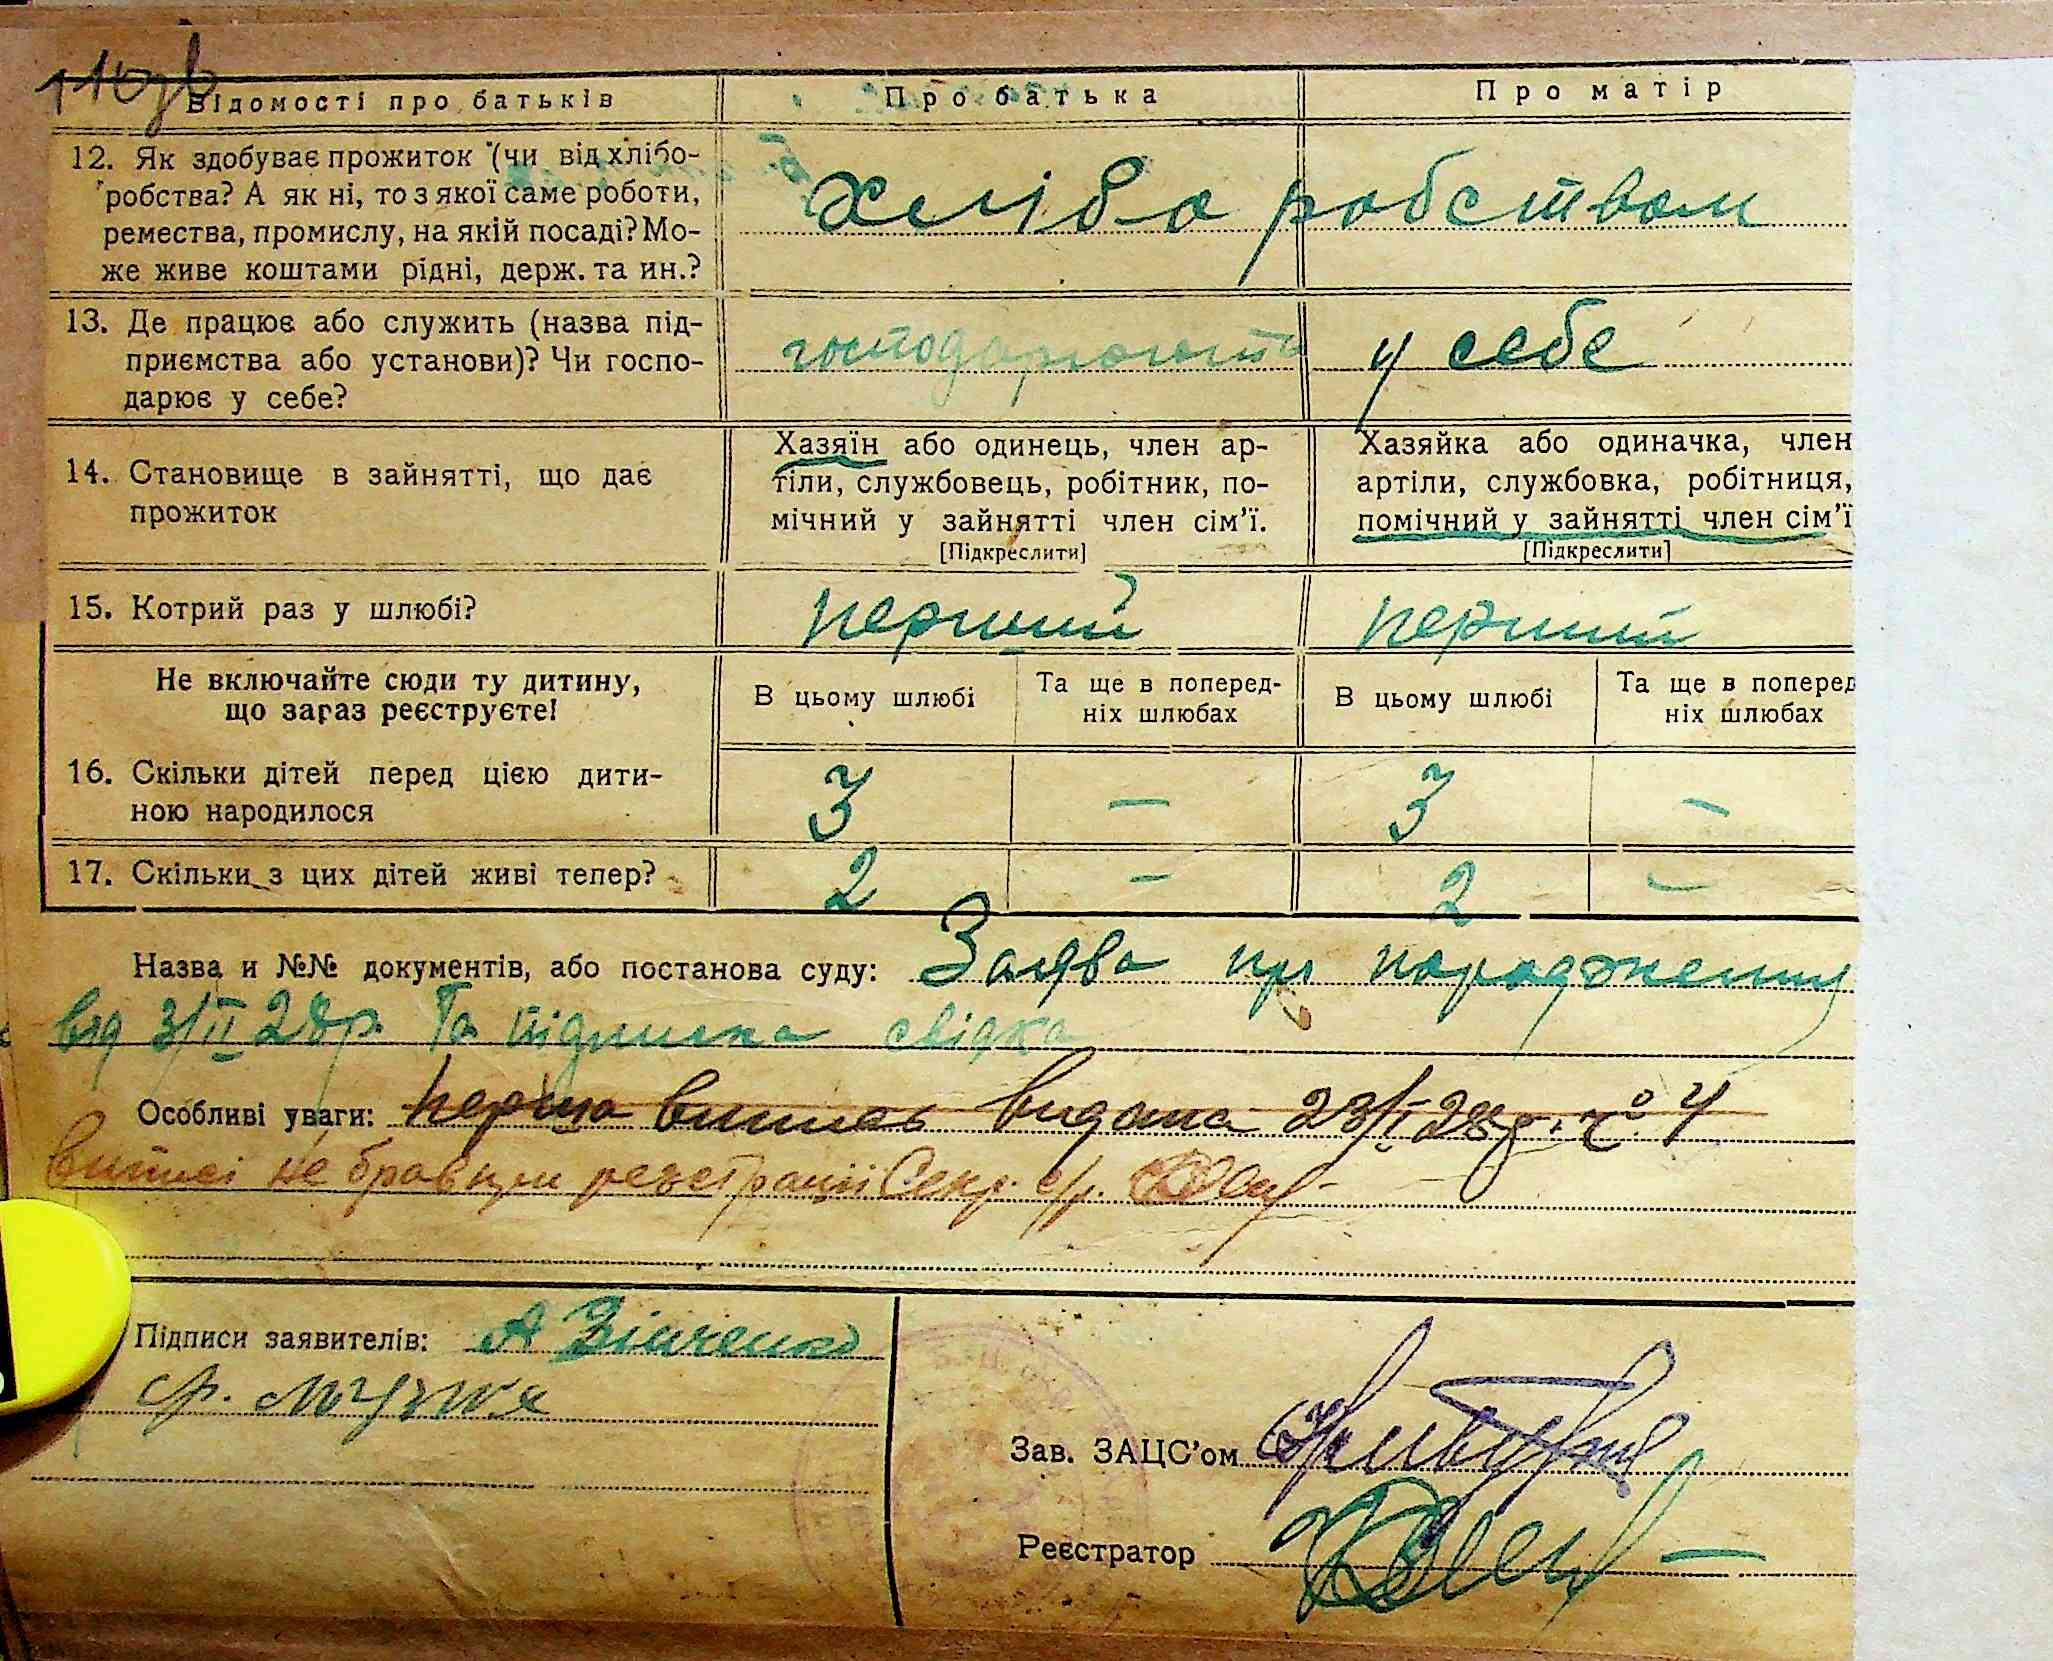 Відомості про батьків Про батька Про матір
12. Як здобуває прожиток (чи від хлібо-
робства? А як ні, то з якої саме роботи,
ремества, промислу, на якій посаді? Мо-
же живе коштами рідні, держ. та ин.?
Хліборобством
13. Де працює або служить (назва під-
приємства або установи)? Чи госпо-
дарює у себе?
господарюють у себе
14. Становище в зайнятті, що дає
прожиток
Хазяїн або одинець, член ар-
тіли, службовець, робітник, по-
мічний у зайнятті член сім'ї.
[Підкреслити]
Хазяйка або одиначка, член
артіли, службовка, робітниця,
помічний у зайнятті член сім'ї
[Підкреслити]
15. Котрий раз у шлюбі? перший перший
Не включайте сюди ту дитину,
що зараз реєструєте!
В цьому шлюбі
Та ще в поперед-
ніх шлюбах
В цьому шлюбі
Та ще в поперед
ніх шлюбах
16. Скільки дітей перед цією дити-
ною народилося
3 — 3 —
17. Скільки з цих дітей живі тепер? 2 — 2 —
Назва и №№ документів, або постанова суду: Заява про народження
від 3/II 28р. Та підписка свідка
Особливі уваги: перша випись видана 23/II 28р. № 4
Виписі не брав при реєстрації Секр. с/р.
Підписи заявителів: А Зінченко
Зав. ЗАЦС'ом
Реєстратор